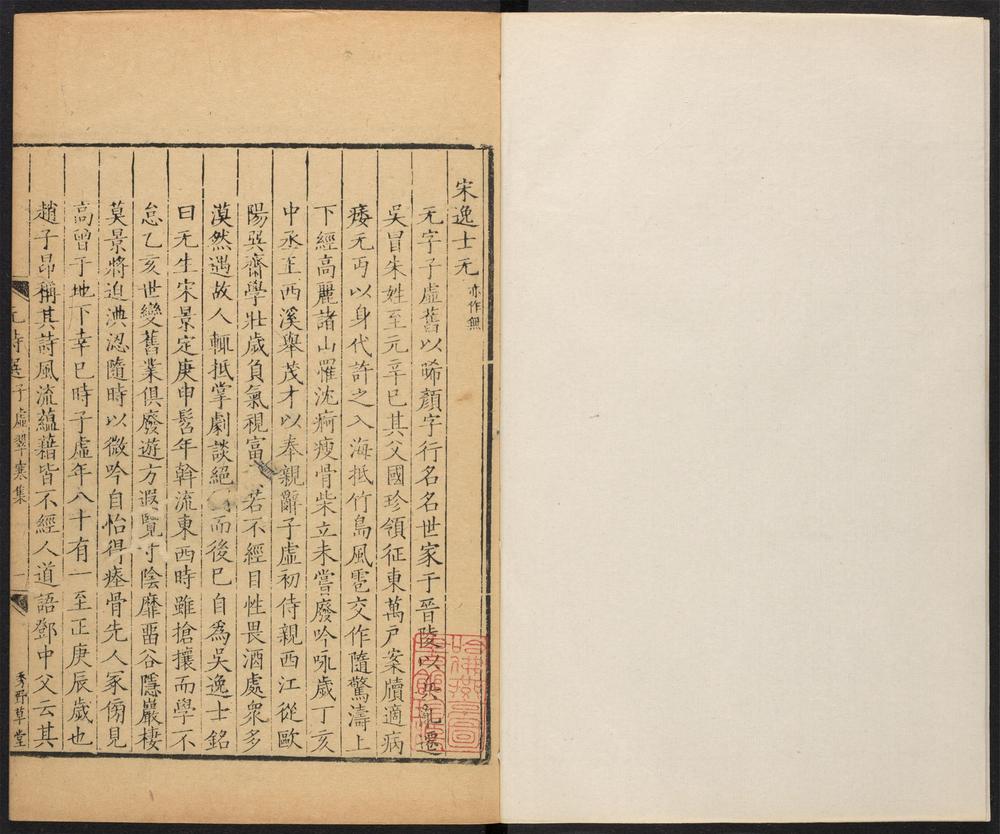 宋逸士无亦作無
无字子虛舊以晞顏字行名名世家于晉陵以兵亂遷
吳冒朱姓至元辛巳其父國珍領征東萬戶案牘適病
痿无丐以身代許之入海抵竹島風雹交作隨驚濤上
下經高麗諸山罹沈痾瘦骨柴立未嘗廢吟咏歲丁亥
中丞王西溪舉茂才以奉親辭子虛初侍親西江從歐
陽巽齋學壯歲負氣視富若不經目性畏酒處眾多
漠然遇故人輒抵掌劇談絕而後已自為吳逸士銘
曰无生宋景定庚申髫年斡流東西時雖搶攘而學不
怠乙亥世變舊業俱廢遊方遐覽寸陰靡畱谷隱巖棲
莫景將迫淟涊隨時以微吟自怡得瘞骨先人冢傍見
高曾于地下幸巳時子虛年八十有一至正庚辰歲也
趙子昂稱其詩風流蘊藉皆不經人道語鄧中父云其
元詩選 子虛翠寒集 一 秀野草堂